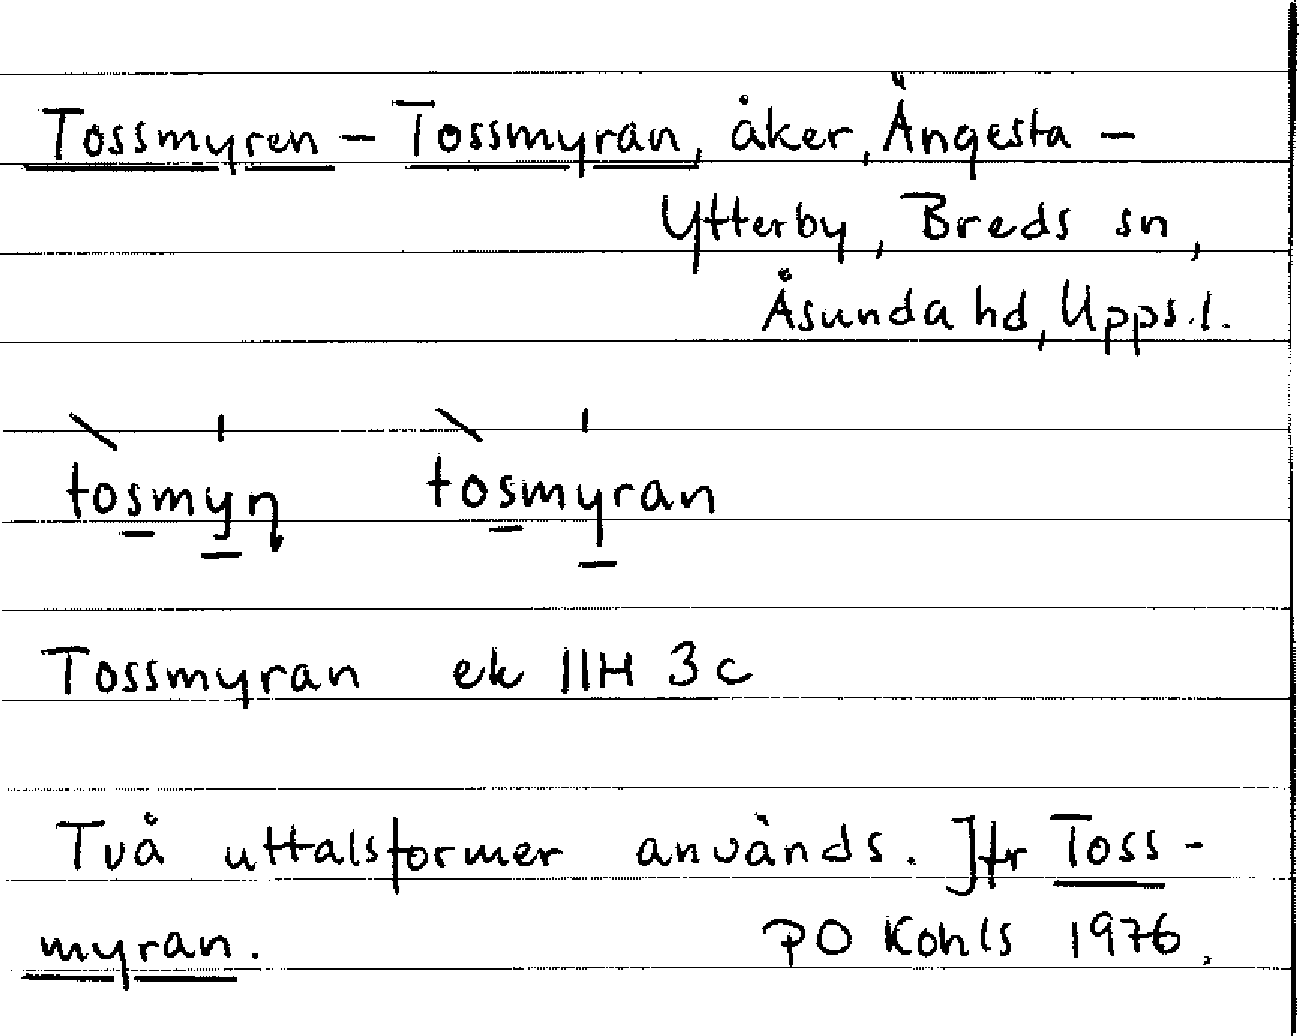 Tossmyren – Tossmyran, åker, Ängesta –
Ytterby, Breds sn,
Åsunda hd, Upps.l.
tosmyn tosmyran
Tossmyran ek 11H 3c
Två uttalsformer används. Jfr Toss-
myran. PO Kohls 1976.